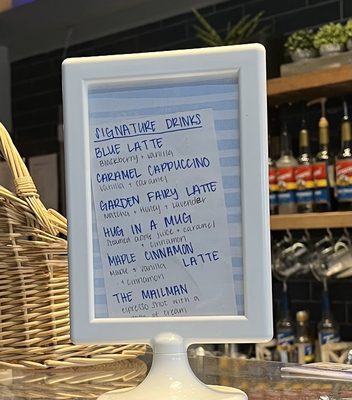 SIGNATURE DRINKS
BLUE LATTE
blackberry + vanilla
CARAMEL CAPPUCCINO
Vanilla + caramel
GARDEN FAIRY LATTE
Matcha + Honey + lavender
HUG IN A MUG
steamed apple juice + caramel
+ cinnamon
MAPLE CINNAMON
LATTE
Maple + vanilla
+ cinnamon
THE MAILMAN
espresso shot with a
of cream